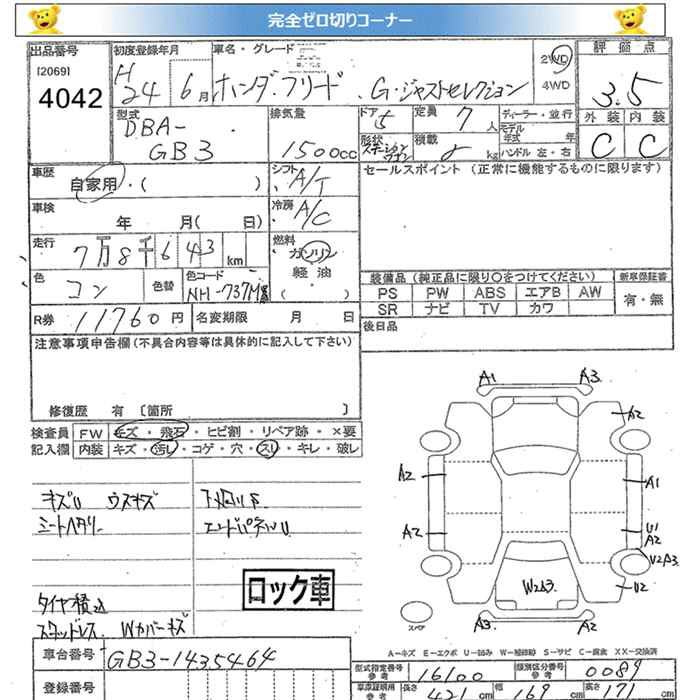 完全ゼロ切りコーナー
出品番号 初度登録年月 車名・グレード 評価点
[2069]
4042 H24 6月 ホンダ フリード G・ジャストセレクション 2WD 4WD 3.5
型式 排気量 ドア 定員 ディーラー・並行 外装 内装
DBA-GB3 1500cc 5 7人 モデル年式 年 C C
形状 ステーションワゴン 積載 kg ハンドル 左・右
車歴 シフト セールスポイント (正常に機能するものに限ります)
自家用・( ) A/T
車検 冷房
年 月( 日) A/C
走行 燃料
7万8千643 km ガソリン 軽油 ( )
色 色替 色コード 装備品(純正品に限り〇をつけてください) 新車保証書
コン NH-737M PS PW ABS エアB AW 有・無
SR ナビ TV カワ
R券 11760円 名変期限 月 日 後日品
注意事項申告欄(不具合内容等は具体的に記入して下さい)
修復歴 有 〔箇所 〕
検査員 FW キズ・飛石・ヒビ割・リペア跡・×要
記入欄 内装 キズ・汚し・コゲ・穴・スリ・キレ・破し
A1 A3
A2
A2 A1
A2 U1
A2
U2A3
W2A3 U2
A3 A2
スペア
キズU ウスキズ
シートヘタリ
エンドパネルU
ロック車
タイヤ積込
スタッドレス Wカバーキズ
A-キズ E-エクボ U-凹み W-補修跡 S-サビ C-腐食 XX-交換済
車台番号 GB3-1435464
型式指定番号 参考 16100 類別区分番号 参考 0089
登録番号
車庫証明用 参考 長さ 421cm 幅 169cm 高さ 171cm